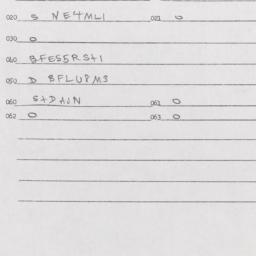 020 S NE4ML1 021 0
030 0
040 BFES5RSt1
050 D BFLU8M3
060 StDAJN 061 0
062 0 063 0